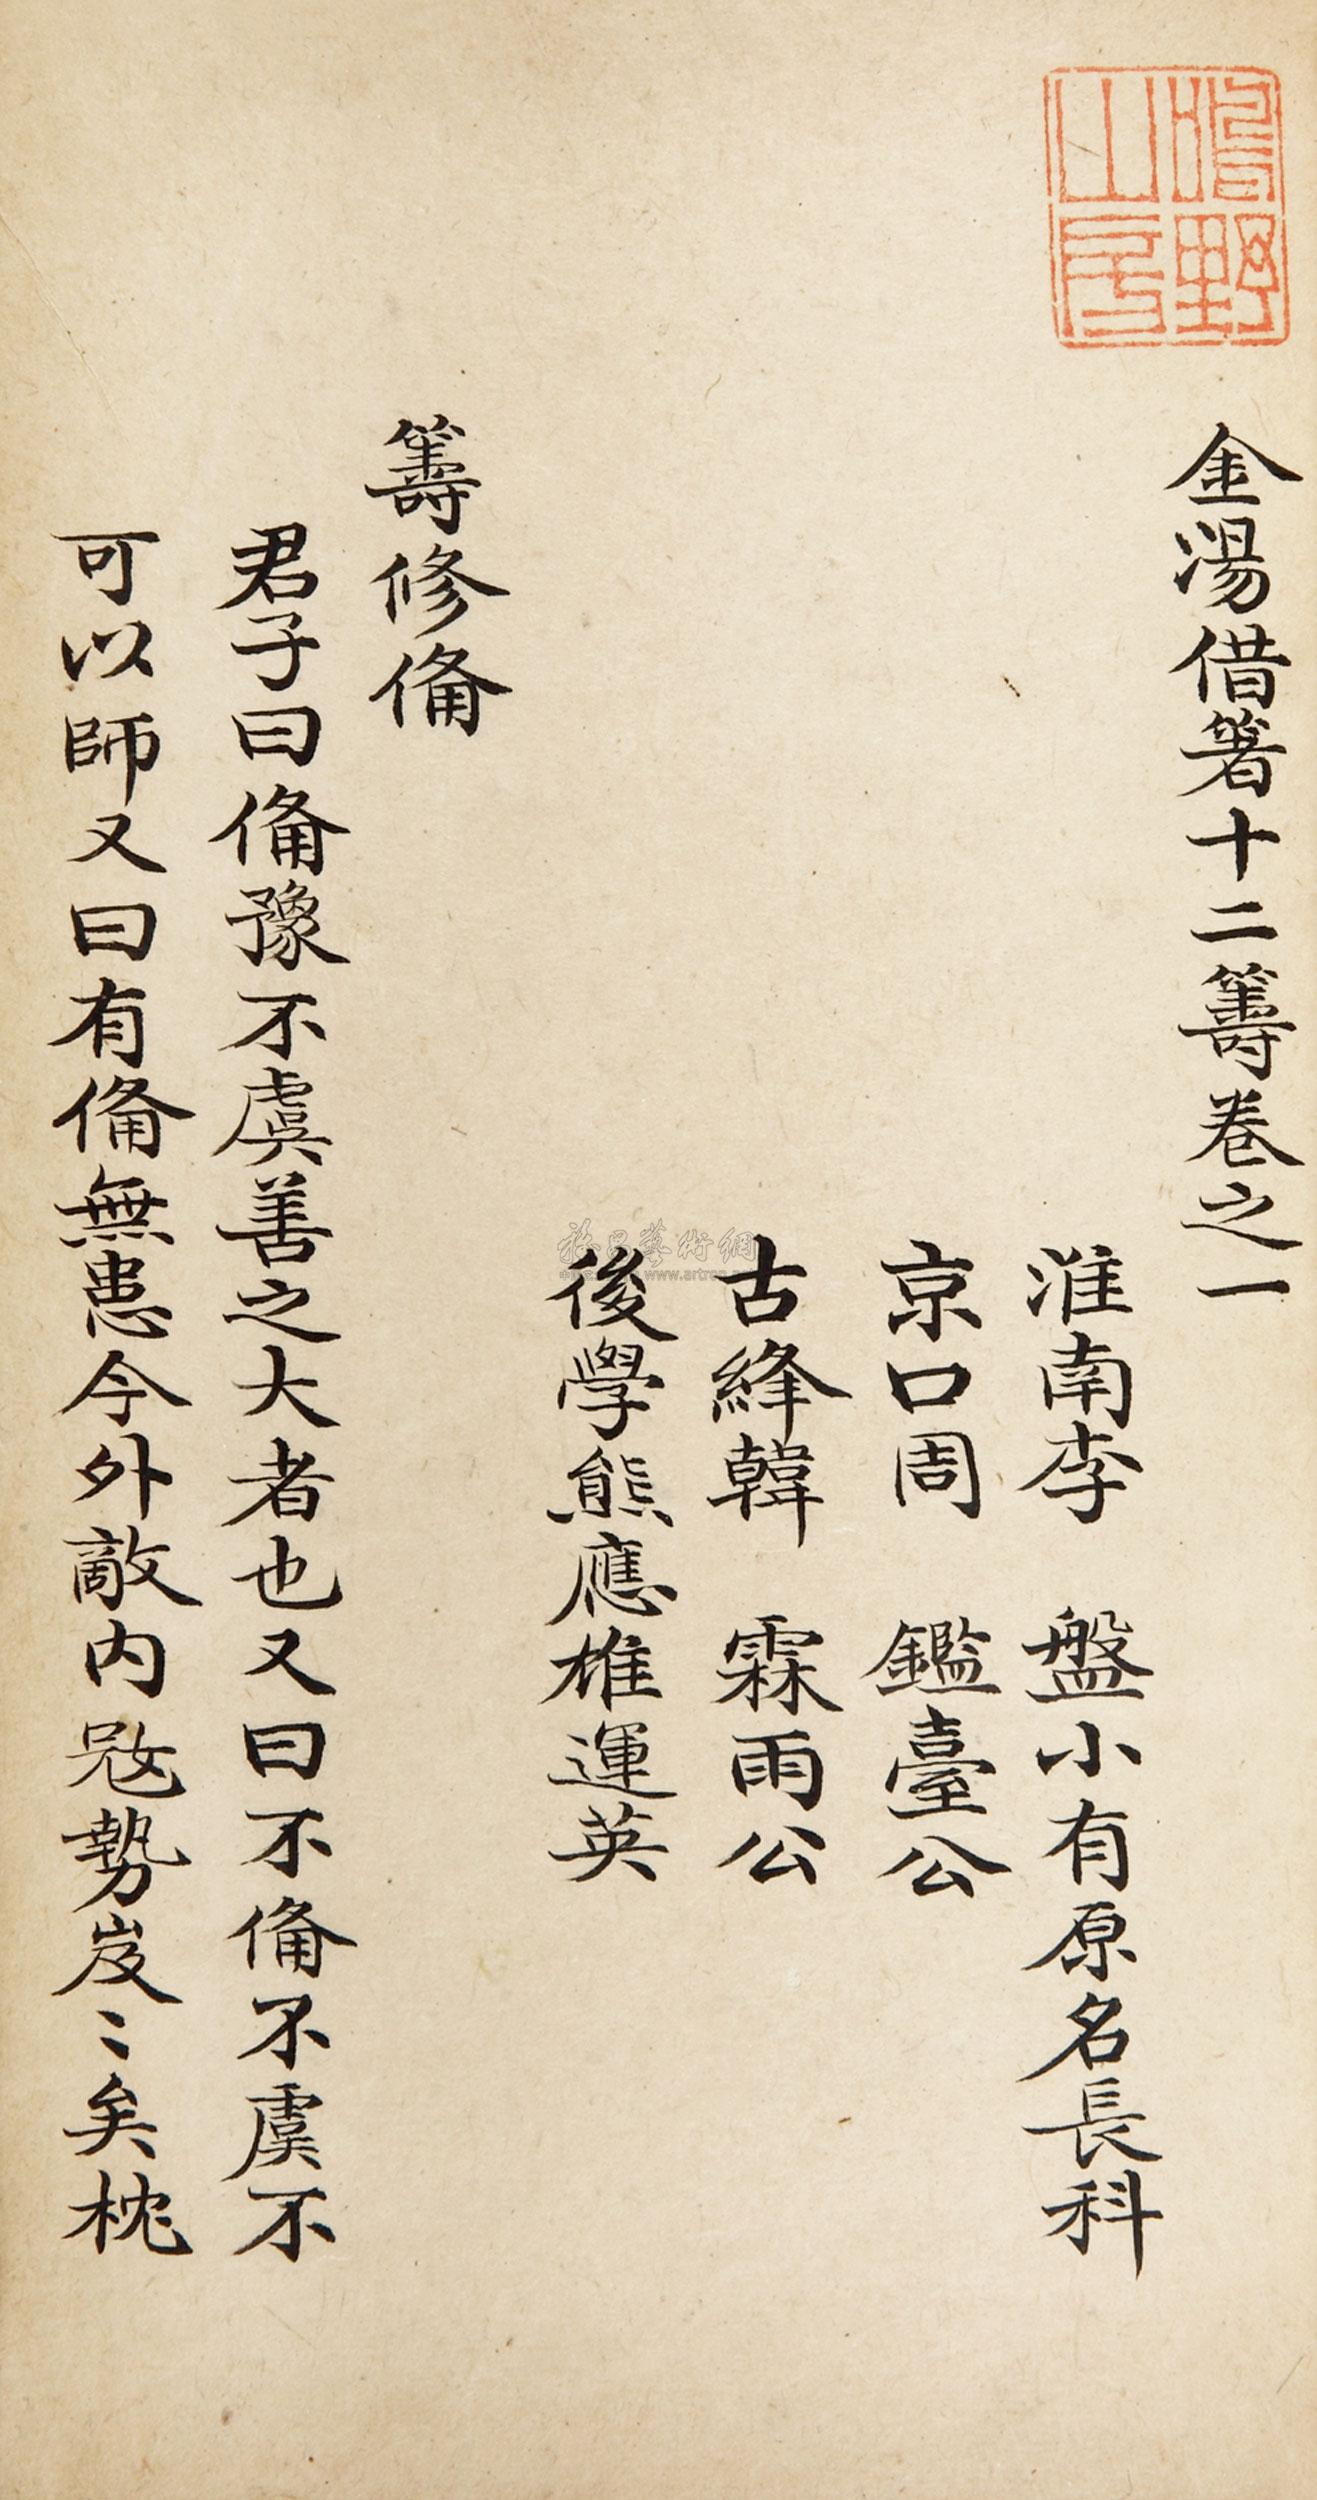 金湯借箸十二籌卷之一
淮南李　盤小有原名長科
京口周　鑑臺公
古絳韓　霖雨公
後學熊應雄運英
籌修備
君子曰備豫不虞善之大者也又曰不備不虞不
可以師又曰有備無患今外敵內寇勢岌〻矣枕
野
山房
www.artron.net